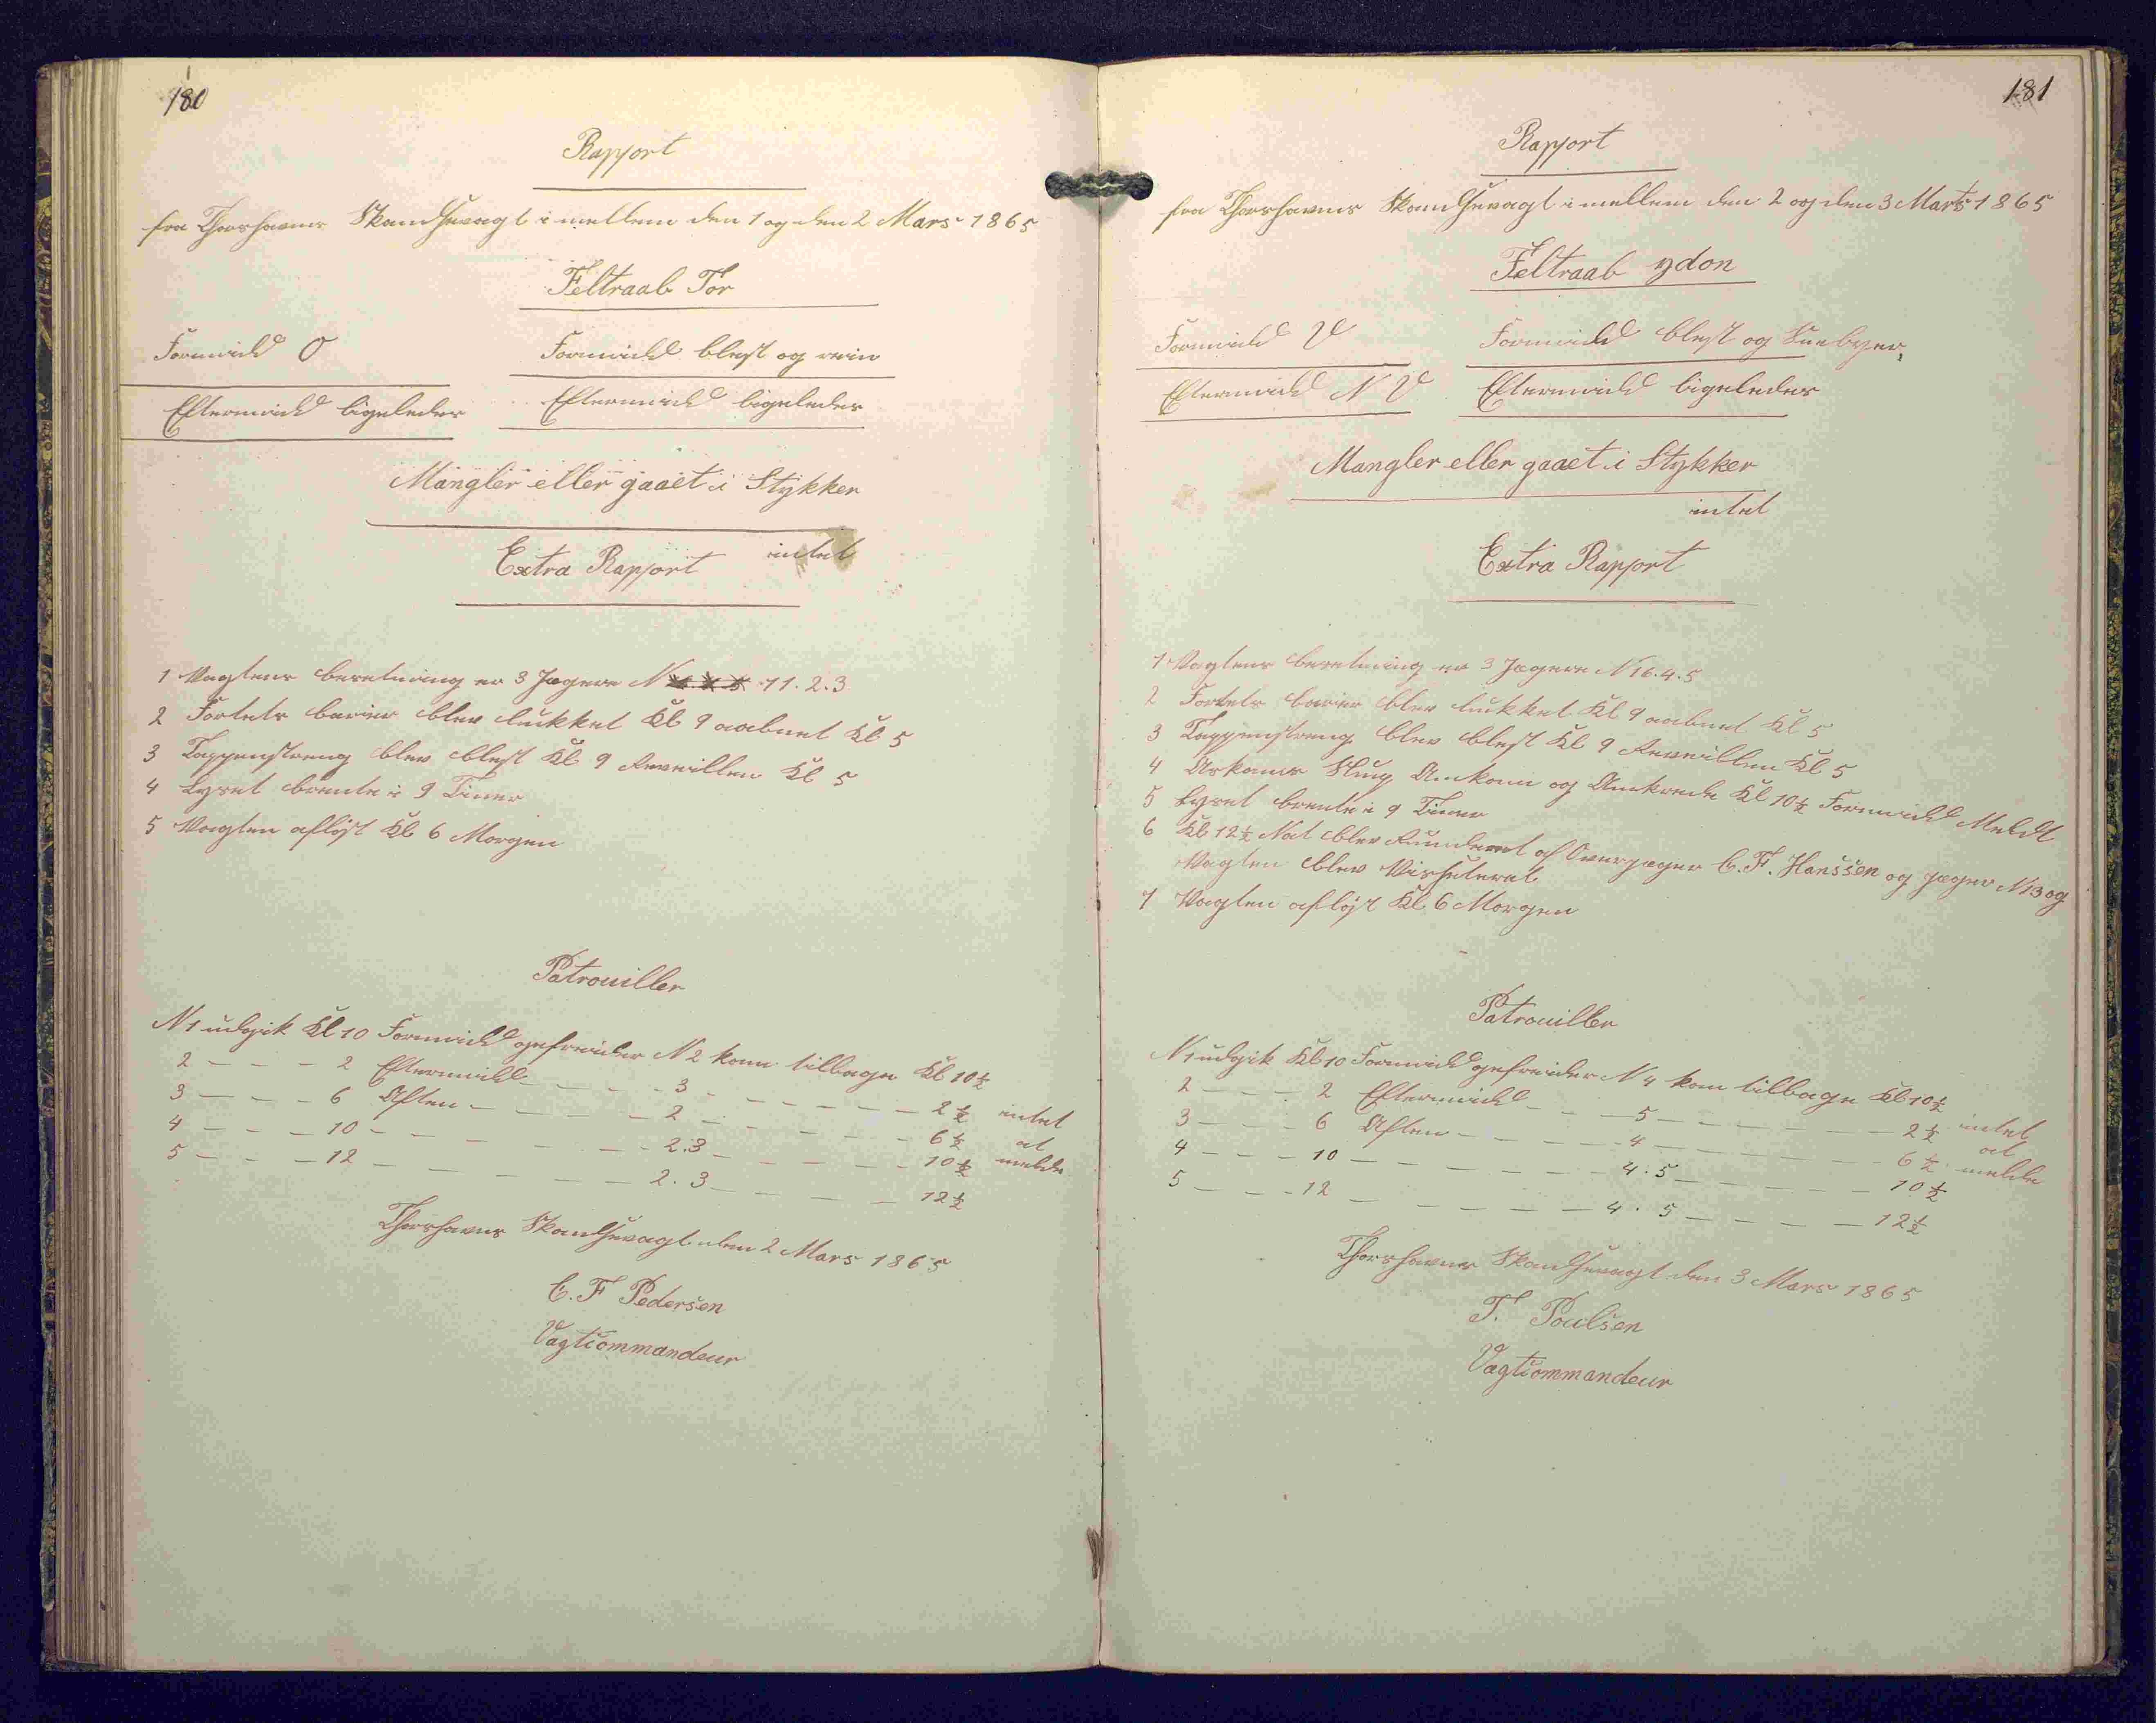 180
Rapport
fra Thorshavns Skandsevagt i mellem den 1 og den 2 Mars 1865
Feltraab Tor
Formidd O Formidd blest og rein
Eftermidd ligeledes Eftermidd ligeledes
Mangler eller gaaet i Stykker
intet
Extra Rapport
1 Vagtens beretning er 3 Jægere N 11. 2. 3
2 Fortets barier blev lukket Kl 9 aabnet Kl 5
3 Tappenstreng blev blest Kl 9 Reveillen Kl 5
4 Lyset brente i 9 Timer
5 Vagten afløst Kl 6 Morgen
Patrouiller
N 1 udgik Kl 10 Formidd gefreider N 2 kom tilbage Kl 10½
2 — — - 2 Eftermidd — — - 3 - — — — — 2½ intet
3 — — - 6 Aften - — — — 2 - — — — — 6½ at
4 — — — 10 - — — — — - 2.3 — — — — - 10½ melde
5 — — — 12 — — — — — 2. 3 — — — — 12½
Thorshavns Skandsevagt den 2 Mars 1865
C. F Pedersen
Vagtcommandeur
181
Rapport
fra Thorshavns Skandsevagt i mellem den 2 og den 3 Marts 1865
Feltraab ydon
Formidd V Formidd blest og Snebyer,
Eftermidd N V Eftermidd ligeledes
Mangler eller gaaet i Stykker
intet
Extra Rapport
1 Vagtens beretning er 3 Jægere N 16. 4. 5
2 Fortets barier blev lukket Kl 9 aabnet Kl 5
3 Tappenstreng blev blest Kl 9 Reveillen Kl 5
4 Slup Ankom og Ankrede Kl 10½ Formidd Meldt
5 Lyset brente i 9 Timer
6 Kl 12½ Nat blev Runderet af Overjæger C. F. Hanssen og jæger N 13 og
Vagten blev Visiteret
7 Vagten afløst Kl 6 Morgen
Patrouiller
N 1 udgik Kl 10 Formidd gefreider N 4 kom tilbage Kl 10½
2 — — - 2 Eftermidd — — — 5 — — — — — 2½ intet
3 — — - 6 Aften — — — — 4 — — — — — 6½ at
4 — — - 10 — — — — — — 4. 5 — — — — — 10½ melde
5 — — - 12 — — — — — 4. 5 — — — — 12½
Thorshavns Skandsevagt den 3 Mars 1865
T. Poulsen
Vagtcommandeur